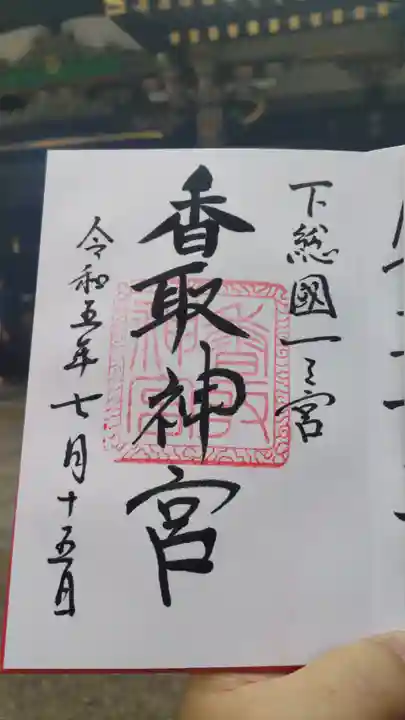 下総國一之宮
香取神宮
令和五年七月十五日
香取神宮